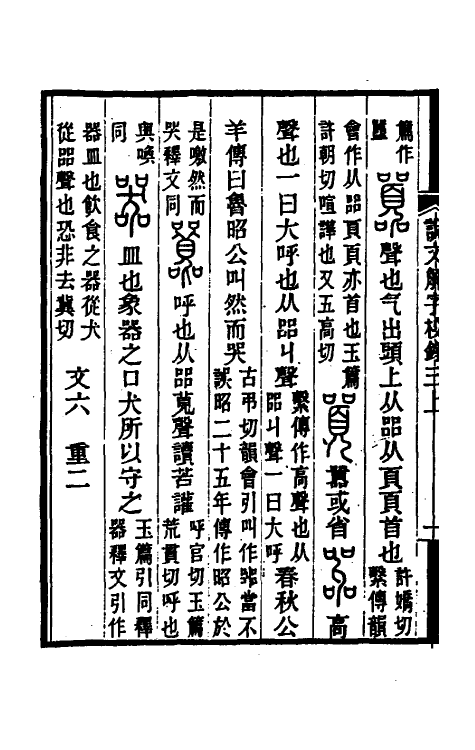 說文解字校錄三上
篇作
囂
囂聲也气出頭上从㗊从頁頁首也
許嬌切
繫傳韻
會作从㗊頁頁亦首也玉篇
許朝切喧譁也又五高切
囂或省
嘂高
聲也一曰大呼也从㗊丩聲
繫傳作高聲也从
㗊丩聲一曰大呼
春秋公
羊傳曰魯昭公叫然而哭
古弔切韻會引叫作嘂當不
誤昭二十五年傳作昭公於
是噭然而
哭釋文同
呼也从㗊莧聲讀若讙
呼官切玉篇
荒貫切呼也
與喚
同
器皿也象器之口犬所以守之
玉篇引同釋
器釋文引作
器皿也飲食之器從犬
從㗊聲也恐非去冀切
文六 重二